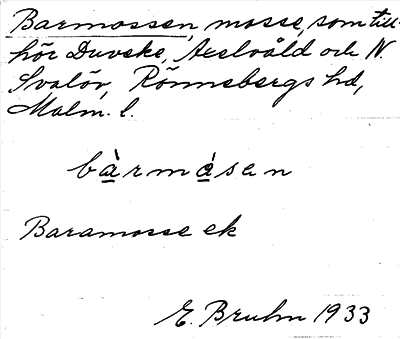 Barmossen, mosse, som till-
hör Duveke, Axelvåld och N.
Svalöv, Rönnebergs hd,
Malm. l.
bàrmósen
Baramosse ek
E. Bruhn 1933